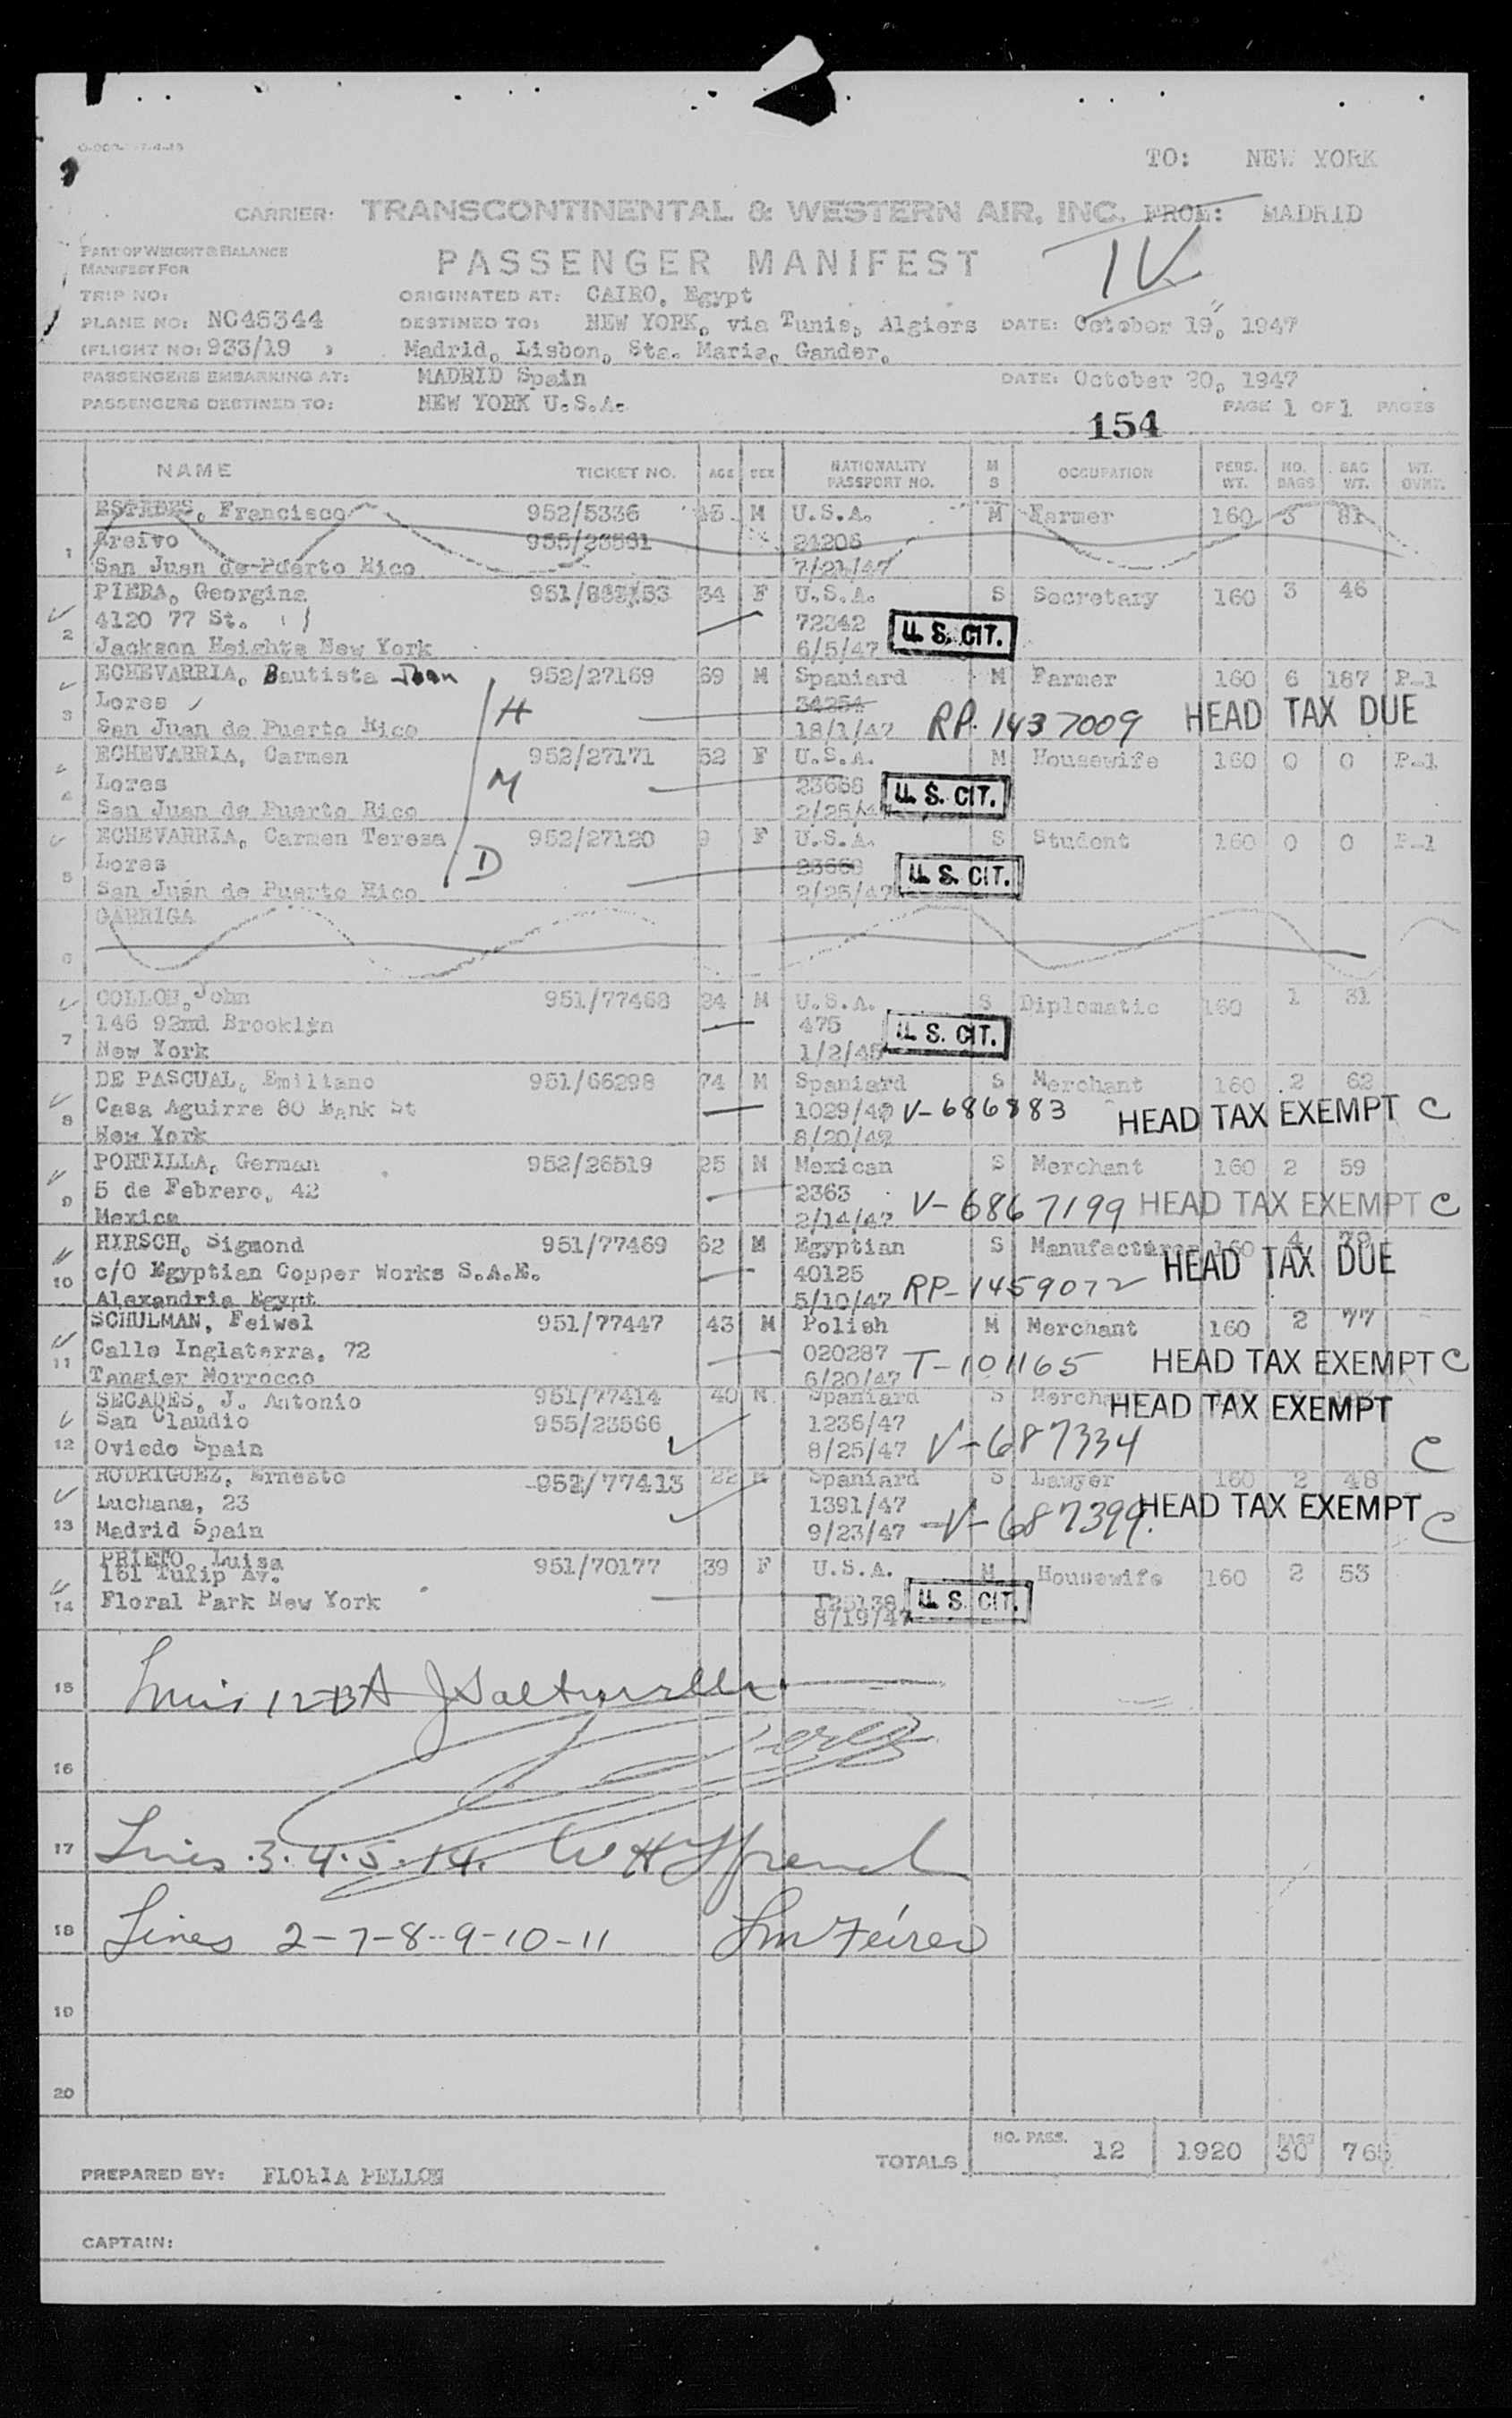 TO: NEW YORK
CARRIER: TRANSCONTINENTAL & WESTERN AIR, INC. FROM: MADRID
PART OF WEIGHT & BALANCE
MANIFEST FOR
PASSENGER MANIFEST
IV
TRIP NO:
ORIGINATED AT: CAIRO, Egypt
PLANE NO: NC45344 DESTINED TO: NEW YORK, via Tunis, Algiers DATE: October 19, 1947
(FLIGHT NO: 933/19 ) Madrid, Lisbon, Sta. Maria, Gander.
PASSENGERS EMBARKING AT: MADRID Spain DATE: October 20, 1947
PASSENGERS DESTINED TO: NEW YORK U.S.A. PAGE 1 OF 1 PAGES
154
NAME TICKET NO. AGE SEX NATIONALITY PASSPORT NO. M S OCCUPATION PERS. WT. NO. BAGS BAG WT. WT. OVNT.
Francisco 952/5336 M U.S.A. M Farmer 160 3 81
1 955/23561 24206
San Juan de Puerto Rico
PIERA, Georgina 34 F U.S.A. S Secretary 160 3 46
2 4120 77 St. 72342 U.S. CIT.
Jackson Heights New York 6/5/47
ECHEVARRIA, Bautista Juan 952/27169 69 M Spaniard M Farmer 160 6 187 P-1
3 Lores H 34254
San Juan de Puerto Rico 18/1/47 RP. 1437009 HEAD TAX DUE
ECHEVARRIA, Carmen 952/27171 52 F U.S.A. M Housewife 160 0 0 P-1
4 Lores M 23668 U.S. CIT.
San Juan de Puerto Rico 2/25/47
ECHEVARRIA, Carmen Teresa 952/27120 9 F U.S.A. S Student 160 0 0 P-1
5 Lores D U.S. CIT.
San Juan de Puerto Rico 2/25/47
GARRIGA
6
John 951/77468 24 M U.S.A. S Diplomatic 160 1 31
7 146 92nd Brooklyn 475 U.S. CIT.
New York
DE PASCUAL, Emiliano 951/66298 74 M Spaniard S Merchant 160 2 62
8 Casa Aguirre 80 Bank St V-686883 HEAD TAX EXEMPT C
New York
PORTILLA, German 952/26519 25 M Mexican S Merchant 160 2 59
9 5 de Febrero, 42 2363 V-6867199 HEAD TAX EXEMPT C
Mexico 2/14/47
HIRSCH, Sigmond 951/77469 62 M Egyptian S Manufacturer 160 4
10 c/O Egyptian Copper Works S.A.E. 40125 HEAD TAX DUE
Alexandria Egypt 5/10/47 RP-1459072
SCHULMAN, Feiwel 951/77447 43 M Polish M Merchant 160 2 77
11 Calle Inglaterra, 72 020287 T-101165 HEAD TAX EXEMPT C
Tangier Morrocco 6/20/47
SECADES, J. Antonio 951/77414 40 M Spaniard S HEAD TAX EXEMPT
San Claudio 955/23566 1236/47
12 Oviedo Spain 8/25/47 V-687334 C
RODRIGUEZ, Ernesto 22 M Spaniard S Lawyer 160 2 48
Luchana, 23 1391/47 HEAD TAX EXEMPT C
13 Madrid Spain 9/23/47 V-687399.
PRIETO, Luisa 951/70177 39 F U.S.A. M Housewife 160 2 53
161 Tulip Av.
14 Floral Park New York U.S. CIT.
8/19/47
15
16
17 Lines 3. 4. 5. 14.
18 Lines 2-7-8-9-10-11
19
20
TOTALS NO. PASS. 12 1920 BAGS 30
PREPARED BY:
CAPTAIN: